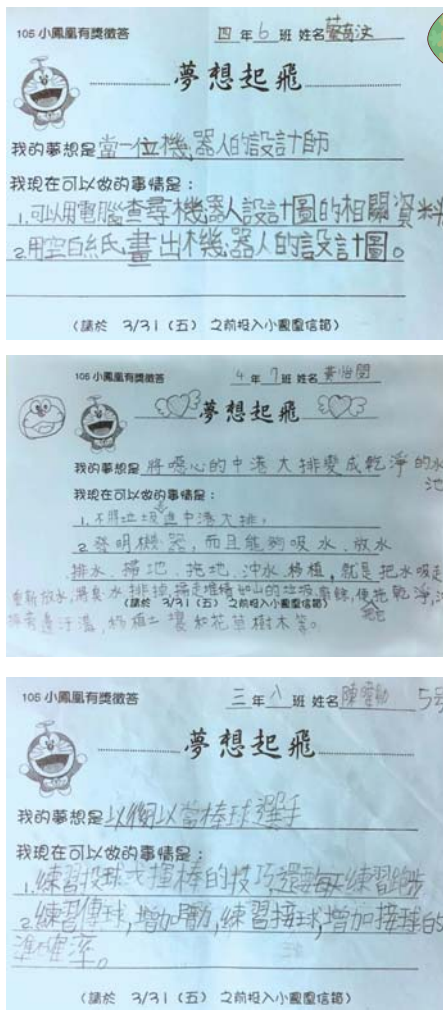 106 小鳳凰有獎徵答
四 年 6 班 姓名
夢想起飛
我的夢想是當一位機器人的設計師
我現在可以做的事情是：
1.可以用電腦查尋機器人設計圖的相關資料
2.用空白紙畫出機器人的設計圖。
（請於 3/31（五）之前投入小鳳凰信箱）
106 小鳳凰有獎徵答
4 年 7 班 姓名 黃
夢想起飛
我的夢想是 將噁心的中港大排變成乾淨的水
池
我現在可以做的事情是：
1.不將垃圾丟進中港大排。
2.發明機器，而且能夠吸水、放水
排水、掃地、拖地、沖水、移植，就是把水吸走
重新放水，將臭水排掉，掃走堆積如山的垃圾、
（請於 3/31（五）之前投入小鳳凰信箱）
移植土壤和花草樹木等。
106 小鳳凰有獎徵答
三 年 八 班 姓名 陳 5号
夢想起飛
我的夢想是以後可以當棒球選手
我現在可以做的事情是：
1.練習投球或揮棒的技巧,還要每天練習跑步
2.練習傳球,增加臂力,練習接球,增加接球的
準確率。
（請於 3/31（五）之前投入小鳳凰信箱）